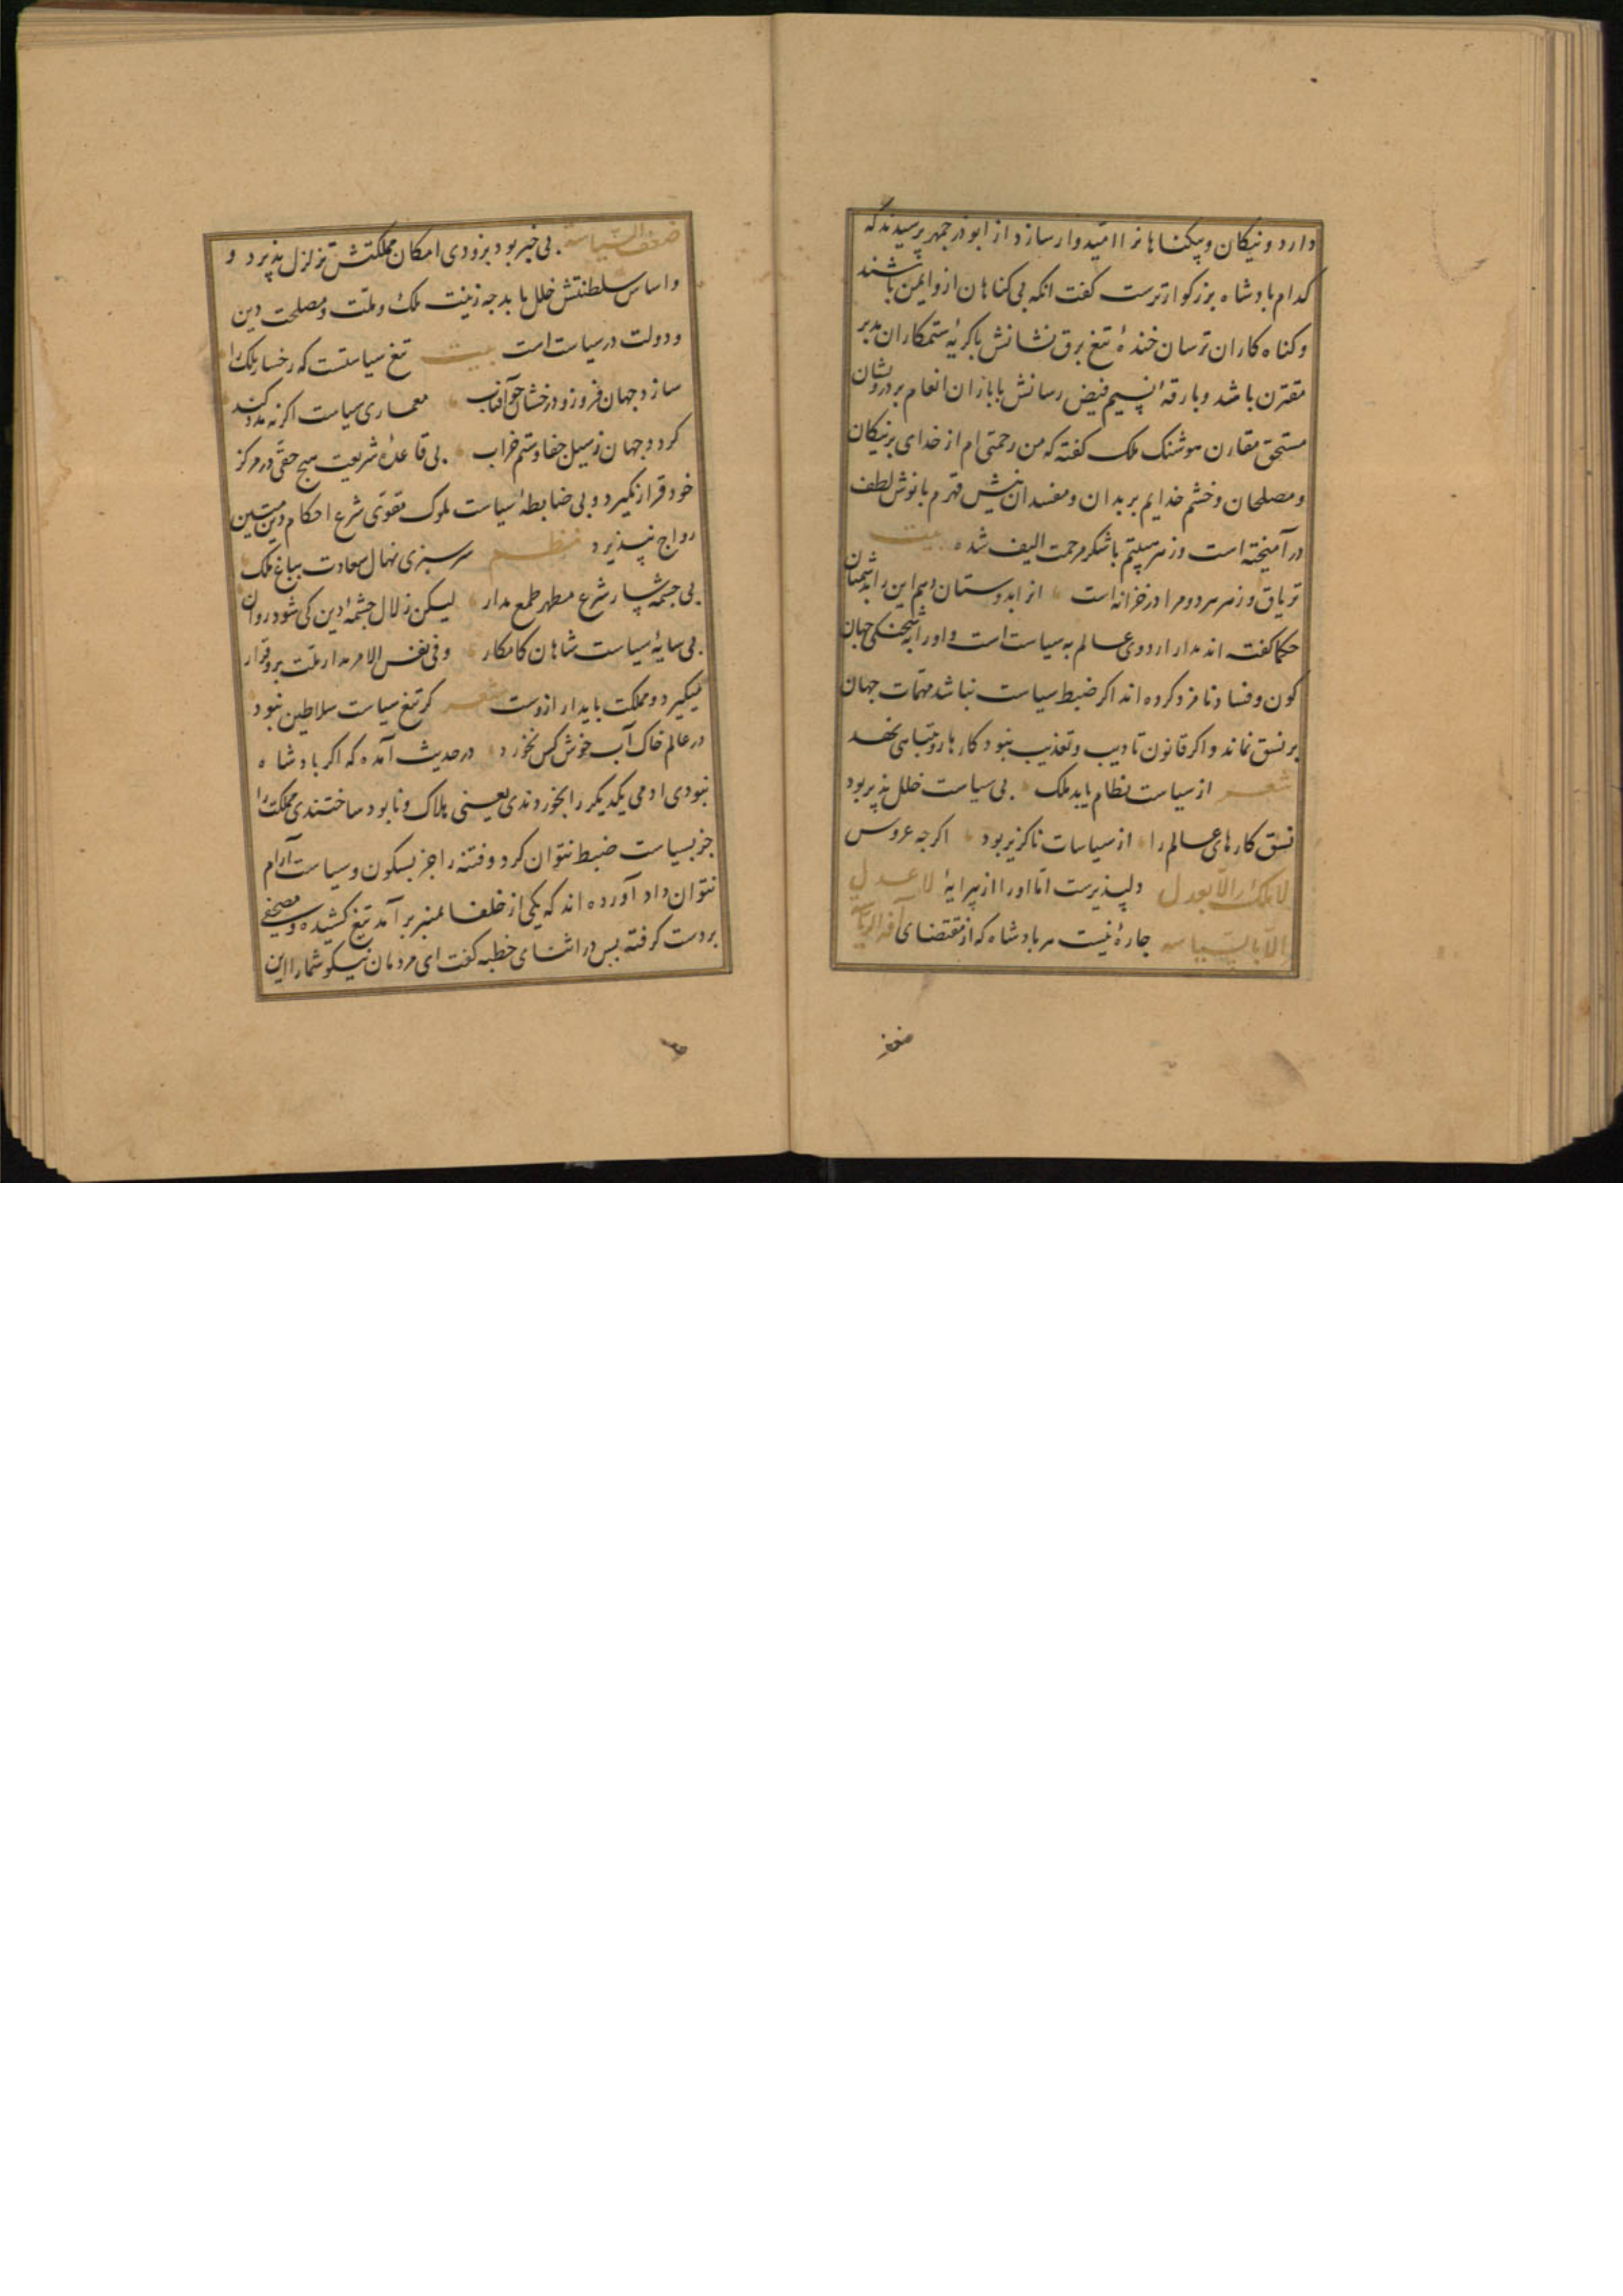 دارد و نیکان و بیکناهانرا امیدوار سازد از ابوذرجمهر پرسیدند که
کدام بادشاه بزرکوارترست کفت انکه بی کناهان ازو ایمن باشند
و کناه کاران ترسان خندهٔ تیغ برق نشانش با کریهٔ ستمکاران مدبر
مقترن باشد و بارقهٔ نسیم فیض رسانش با باران انعام بر درویشان
مستحق مقارن هوشنک ملک کفته که من رحمتی ام از خدای بر نیکان
و مصلحان و خشم خدایم بر بدان و مفسدان نیش قهرم با نوش لطف
در آمیخته است و زهر هیبتم با شکر مرحمت الیف شده بیت
تریاق و زهر هر دو مرا در خزانه است انرا بدوستان دهم این را بدشمنان
حکما کفته اند مدار اردوی عالم به سیاست است و اورا به شحنکی جهان
کون و فساد نامزد کرده اند اکر ضبط سیاست نباشد مهمات جهان
بر نسق نماند و اکر قانون تادیب و تعذیب نبود کارها رو بتباهی نهد
شعر از سیاست نظام یابد ملک بی سیاست خلل پذیر بود
نسق کارهای عالم را از سیاسات ناکزیر بود اکرجه عروس
لا ملک الا بعدل دلپذیرست اما اورا از پیرایهٔ لا عدل
الا بالسیاسه جارهٔ نیست هر بادشاه که از مقتضای آفة الریاسة
ضعف
ضعف السیاسة بی خبر بود بزودی ارکان مملکتش تزلزل پذیرد و
و اساس سلطنتش خلل یابد جه زینت ملک و ملت و مصلحت دین
و دولت در سیاست است بیت تیغ سیاستست که رخسار ملک را
سازد جهان فروز و درخشان جو آفتاب معماری سیاست اکر نه مدد کند
کردد جهان ز سیل جفا و ستم خراب بی قاعدهٔ شریعت هیج حقی در مرکز
خود قرار نکیرد و بی ضابطهٔ سیاست ملوک مقوی شرع احکام دین متین
رواج نپذیرد نظم سرسبزی نهال سعادت بباغ ملک
بی جشمه سار شرع مطهر طمع مدار لیکن زلال جشمهٔ دین کی شود روان
بی سایهٔ سیاست شاهان کامکار و فی نفس الامر مدار ملت برو قرار
میکیرد و مملکت بایدار ازوست شعر کر تیغ سیاست سلاطین نبود
در عالم خاک آب خوش کس نخورد در حدیث آمده که اکر بادشاه
نبودی ادمی یکدیکر را بخوردندی یعنی هلاک و نابود ساختندی مملکت را
جز بسیاست ضبط نتوان کرد و فتنه را جز بسکون و سیاست آرام
نتوان داد آورده اند که یکی از خلفا بمنبر بر آمد تیغ کشیده و مصحفی
بر دست کرفته بس در اثنای خطبه کفت ای مردمان نیکو شمارا این